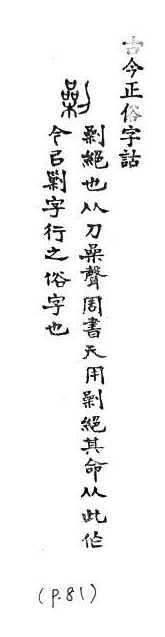 古今正俗字詁
劋
劋絕也从刀巢聲周書天用劋絕其命从此作
今㠯剿字行之俗字也
(P.81)